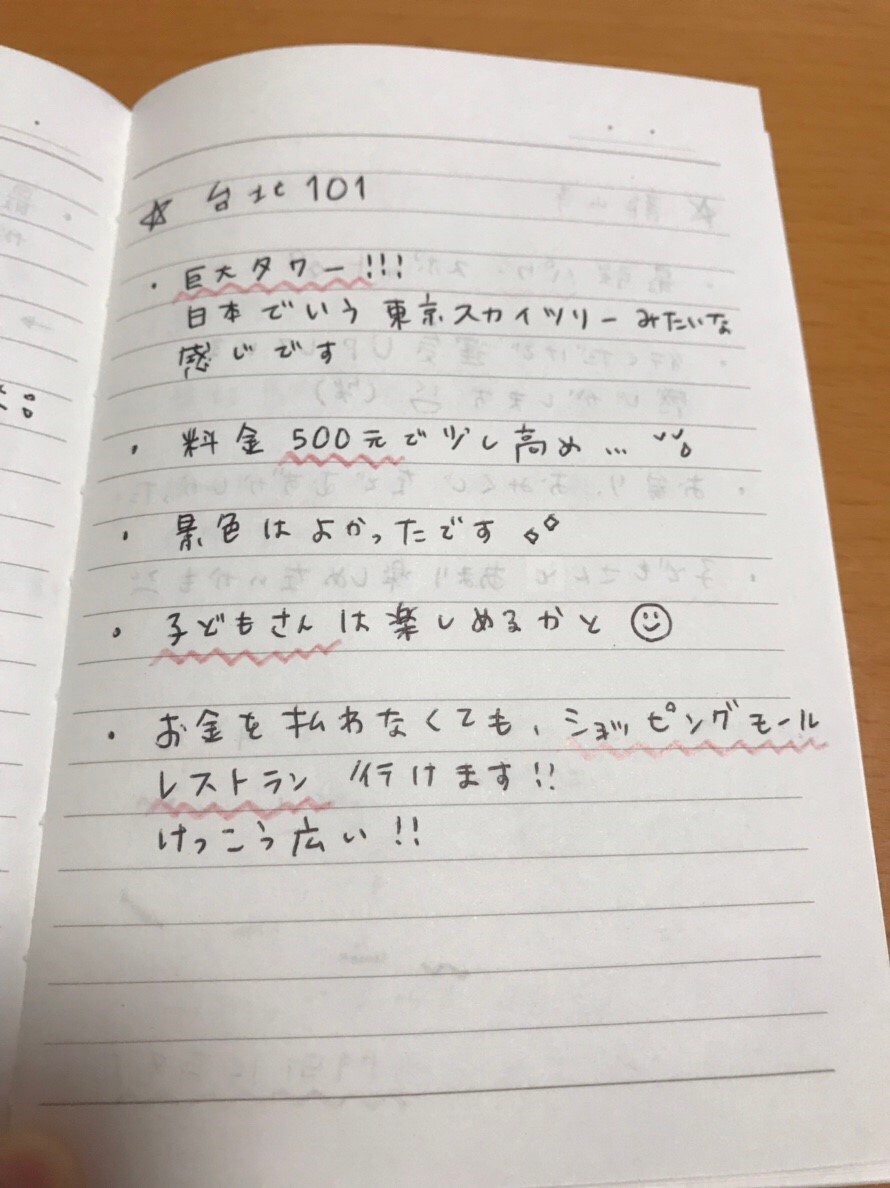 ☆ 台北101
・巨大タワー!!!
日本でいう東京スカイツリーみたいな
感じです
・料金500元で少し高め…
・景色はよかったです
・子どもさんは楽しめるかと
・お金を払わなくても、ショッピングモール
レストラン行けます!!
けっこう広い!!